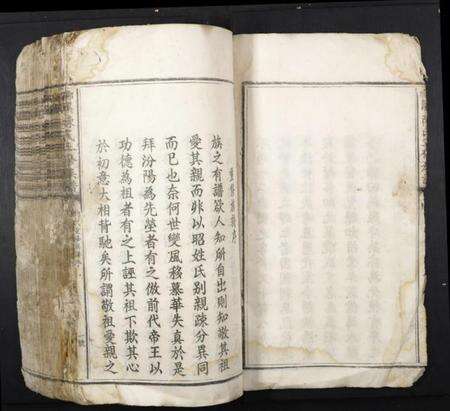 重修族譜序
族之有譜欲人知所自出則知敬其祖
愛其親而非以昭姓氏别親疎分異同
而已也奈何世變風移慕華失真於是
拜汾陽為先塋者有之倣前代帝王以
功德為祖者有之上誣其祖下欺其心
於初意大相背馳矣所謂敬祖愛親之